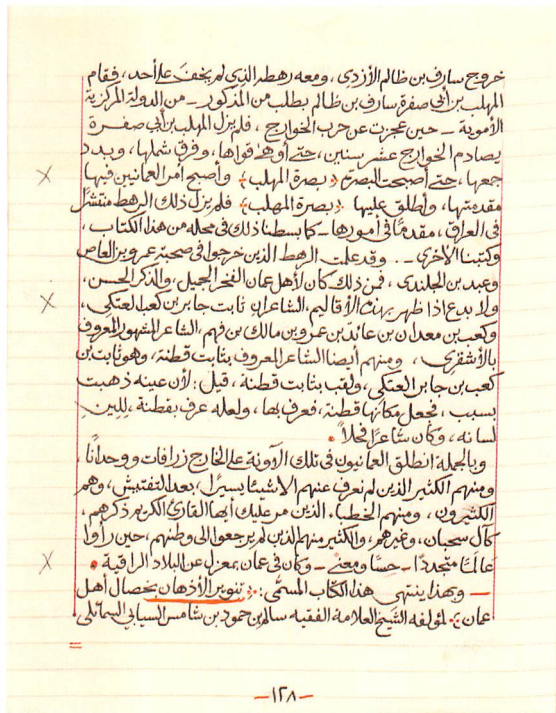 خروج سارف بن ظالم الأزدي، ومعه رهطه الذي لم يخفَ على أحد، فقام
المهلب بن أبي صفرة سارف بن ظالم بطلب من المذكور - من الدولة المركزية
الأموية - حين عجزت عن حرب الخوارج، فلم يزل المهلب بن أبي صفـــرة
يصادم الخوارج عشر سنين، حتى أوهى قواها، وفرق شملها، وبدد
جمعها، حتى أصبحت البصرة «بصرة المهلب» وأصبح أمر العمانيين فيها
مقدمتها، وأطلق عليها «بصرة المهلب» فلم يزل ذلك الرهط منتشرًا
في العراق، مقدمًا في أمورها - كما بسطنا ذلك في محله من هذا الكتاب،
وكتبنا الأخرى -. وقد علمت الرهط الذين خرجوا في صحبة عمرو بن العاص
وعبد بن الجلندى، فمن ذلك كان لأهل عمان الفخر الجميل، والذكر الحسن،
ولا بدع إذا ظهر بهذه الأقاليم، الشاعران ثابت جابر بن كعب العتكي،
وكعب بن معدان بن عائذ بن عمرو بن مالك بن فهم، الشاعر المشهور المعروف
بالأشقري، ومنهم أيضا الشاعر المعروف بثابت قطنة، وهو ثابت بن
كعب بن جابر العتكي، ولقب بثابت قطنة، قيل: لأن عينه ذهبت
بسبب، فجعل مكانها قطنة، فعرف بها، ولعله عرف بقطنة، لِلِينِ
لسانه، وكان شاعرًا فحلاً.
وبالجملة انطلق العمانيون في تلك الآونة على الخارج زرافات ووحدانًا،
ومنهم الكثير الذين لم نعرف عنهم إلا شيئا يسيرًا، بعد التفتيش، وهم
الكثيرون، ومنهم الخطباء. الذين مر عليك أيها القارئ الكريم ذكرهم،
كآل سحبان، وغيرهم، والكثير منهم الذين لم يرجعوا إلى وطنهم، حين رأوا
عالمًا متجددًا - حسًا ومعنى - وكان في عمان بمعزل عن البلاد الراقية.
- وبهذا ينتهي هذا الكتاب المسمَّى: «تنوير الأذهان بخصال أهل
عمان»: لمؤلفه الشيخ العلامة الفقيه سالم بن حمود بن شامس السيابي السمائلي
-١٢٨-